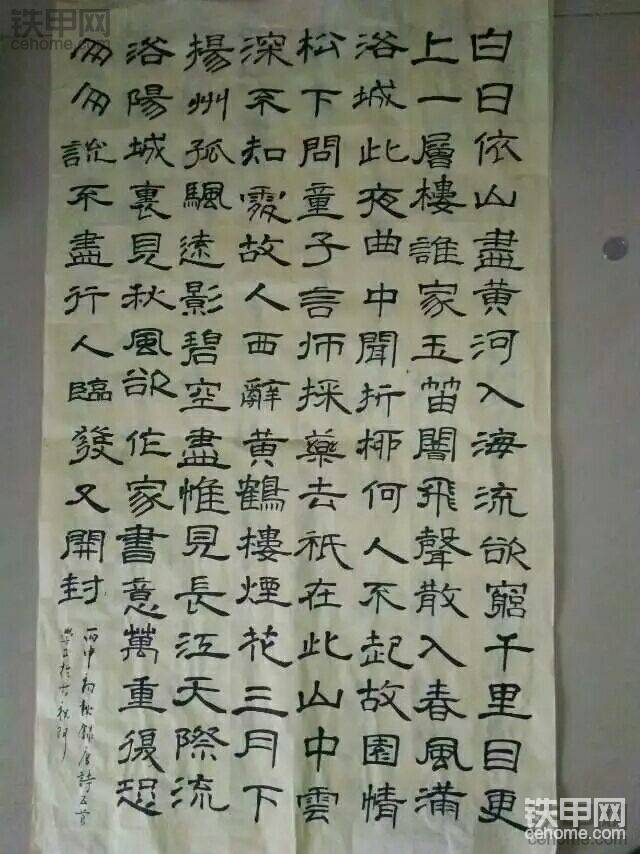 铁甲网
cehome.com
白日依山盡黄河入海流欲窮千里目更
上一層樓誰家玉笛闇飛聲散入春風滿
浴城此夜曲中聞折桺何人不起故園情
松下問童子言师採藥去祇在此山中雲
深不知處故人西辭黄鶴樓煙花三月下
揚州孤颿遠影碧空盡惟見長江天際流
浴陽城裏見秋風欲作家書意萬重復恐
匆匆說不盡行人臨發又開封
丙申初秋錄唐詩五首
铁甲网
cehome.com